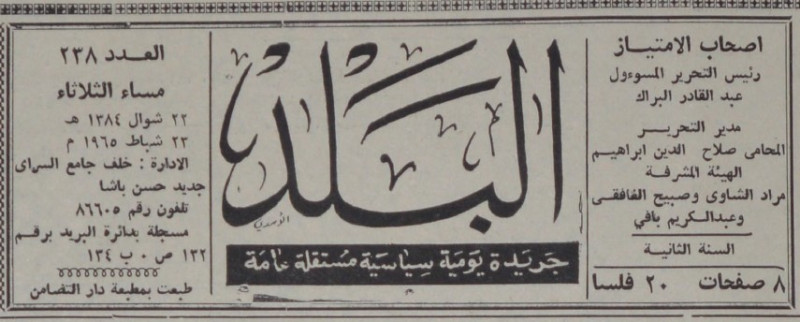 اصحاب الامتياز
رئيس التحرير المسوءول
عبد القادر البراك
مدير التحرير
المحامى صلاح الدين ابراهيم
الهيئة المشرفة
مراد الشاوى وصبيح الغافقى
وعبدالكريم بافي
السنة الثانية
٨ صفحات ٢٠ فلسا
البلد
جريدة يومية سياسية مستقلة عامة
العدد ٢٣٨
مساء الثلاثاء
٢٢ شوال ١٣٨٤ هـ
٢٣ شباط ١٩٦٥ م
الادارة : خلف جامع السراى
جديد حسن باشا
تلفون رقم ٨٦٦٠٥
مسجلة بدائرة البريد برقم
١٣٢ ص ٠ ب ١٣٤
طبعت بمطبعة دار التضامن